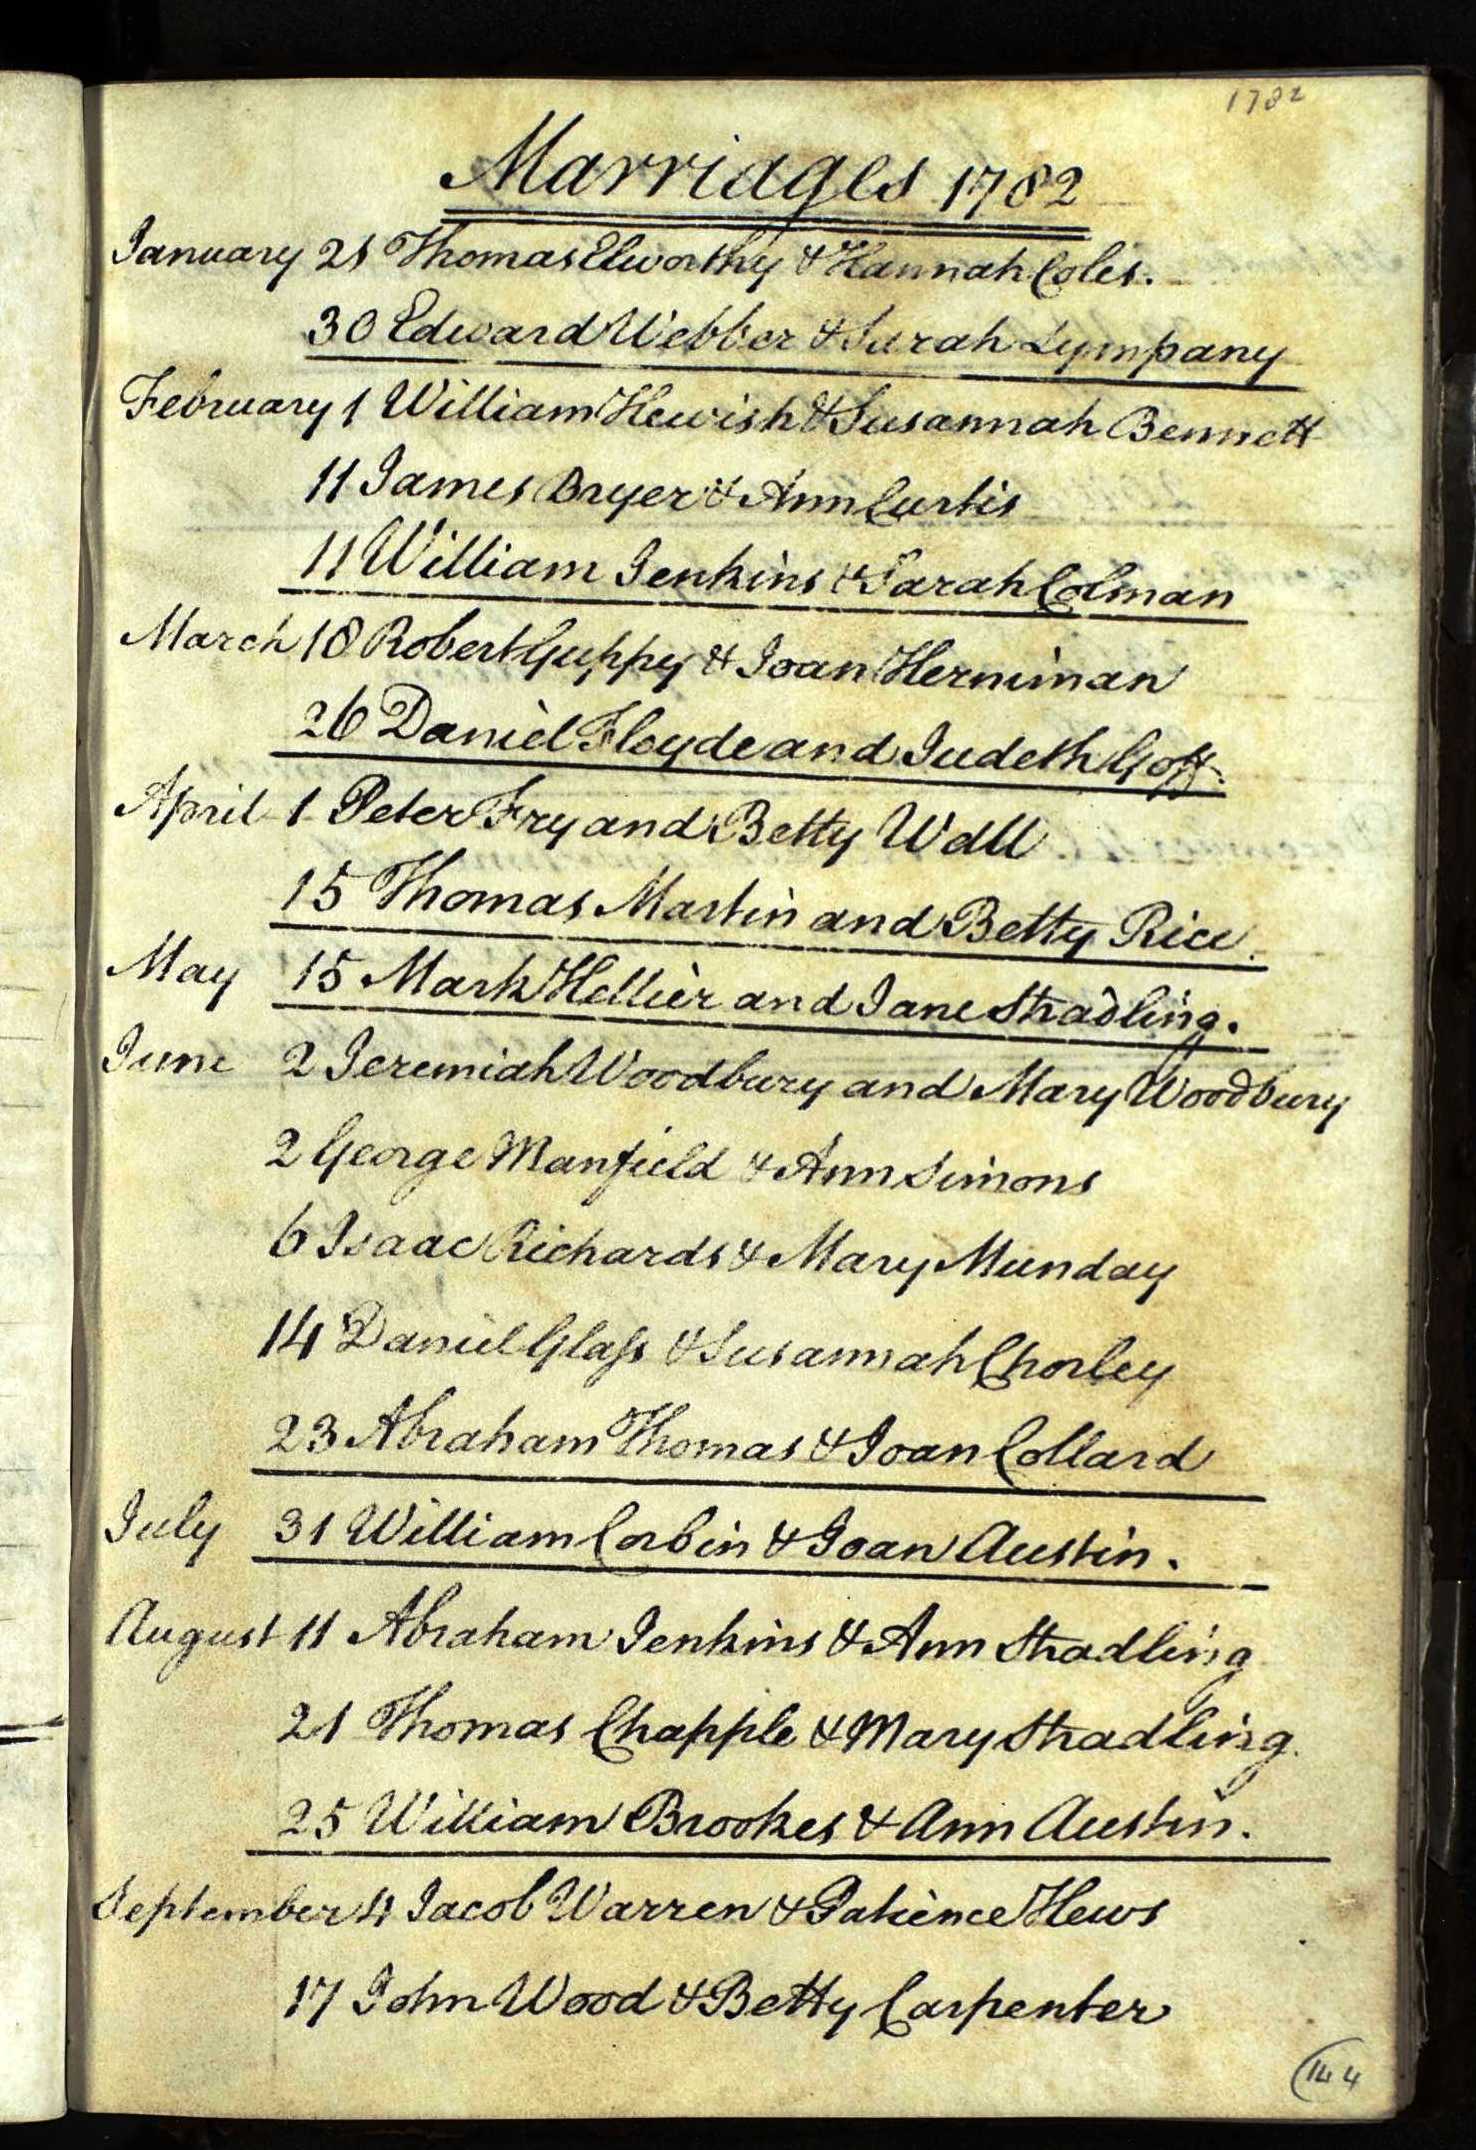 1782
Marriages 1782
January 21 Thomas Elworthy & Hannah Coles.
30 Edward Webber & Sarah Lympany
February 1 William Hewish & Susannah Bennett
11 James Bryer & Ann Curtis
11 William Jenkins & Sarah Colman
March 18 Robert Guppy & Joan Herniman
26 Daniel Floyde and Judeth Goff.
April 1 Peter Fry and Betty Wall
15 Thomas Martin and Betty Rice.
May 15 Mark Hellier and Jane Stradling.
June 2 Jeremiah Woodbury and Mary Woodbury
2 George Manfield & Ann Simons
6 Isaac Richards & Mary Munday
14 Daniel Glaſs & Susannah Chorley
23 Abraham Thomas & Joan Collard
July 31 William Corbin & Joan Austin.
August 11 Abraham Jenkins & Ann Stradling
21 Thomas Chapple & Mary Stradling.
25 William Brookes & Ann Austin.
September 4 Jacob Warren & Patience Hews
17 John Wood & Betty Carpenter
144